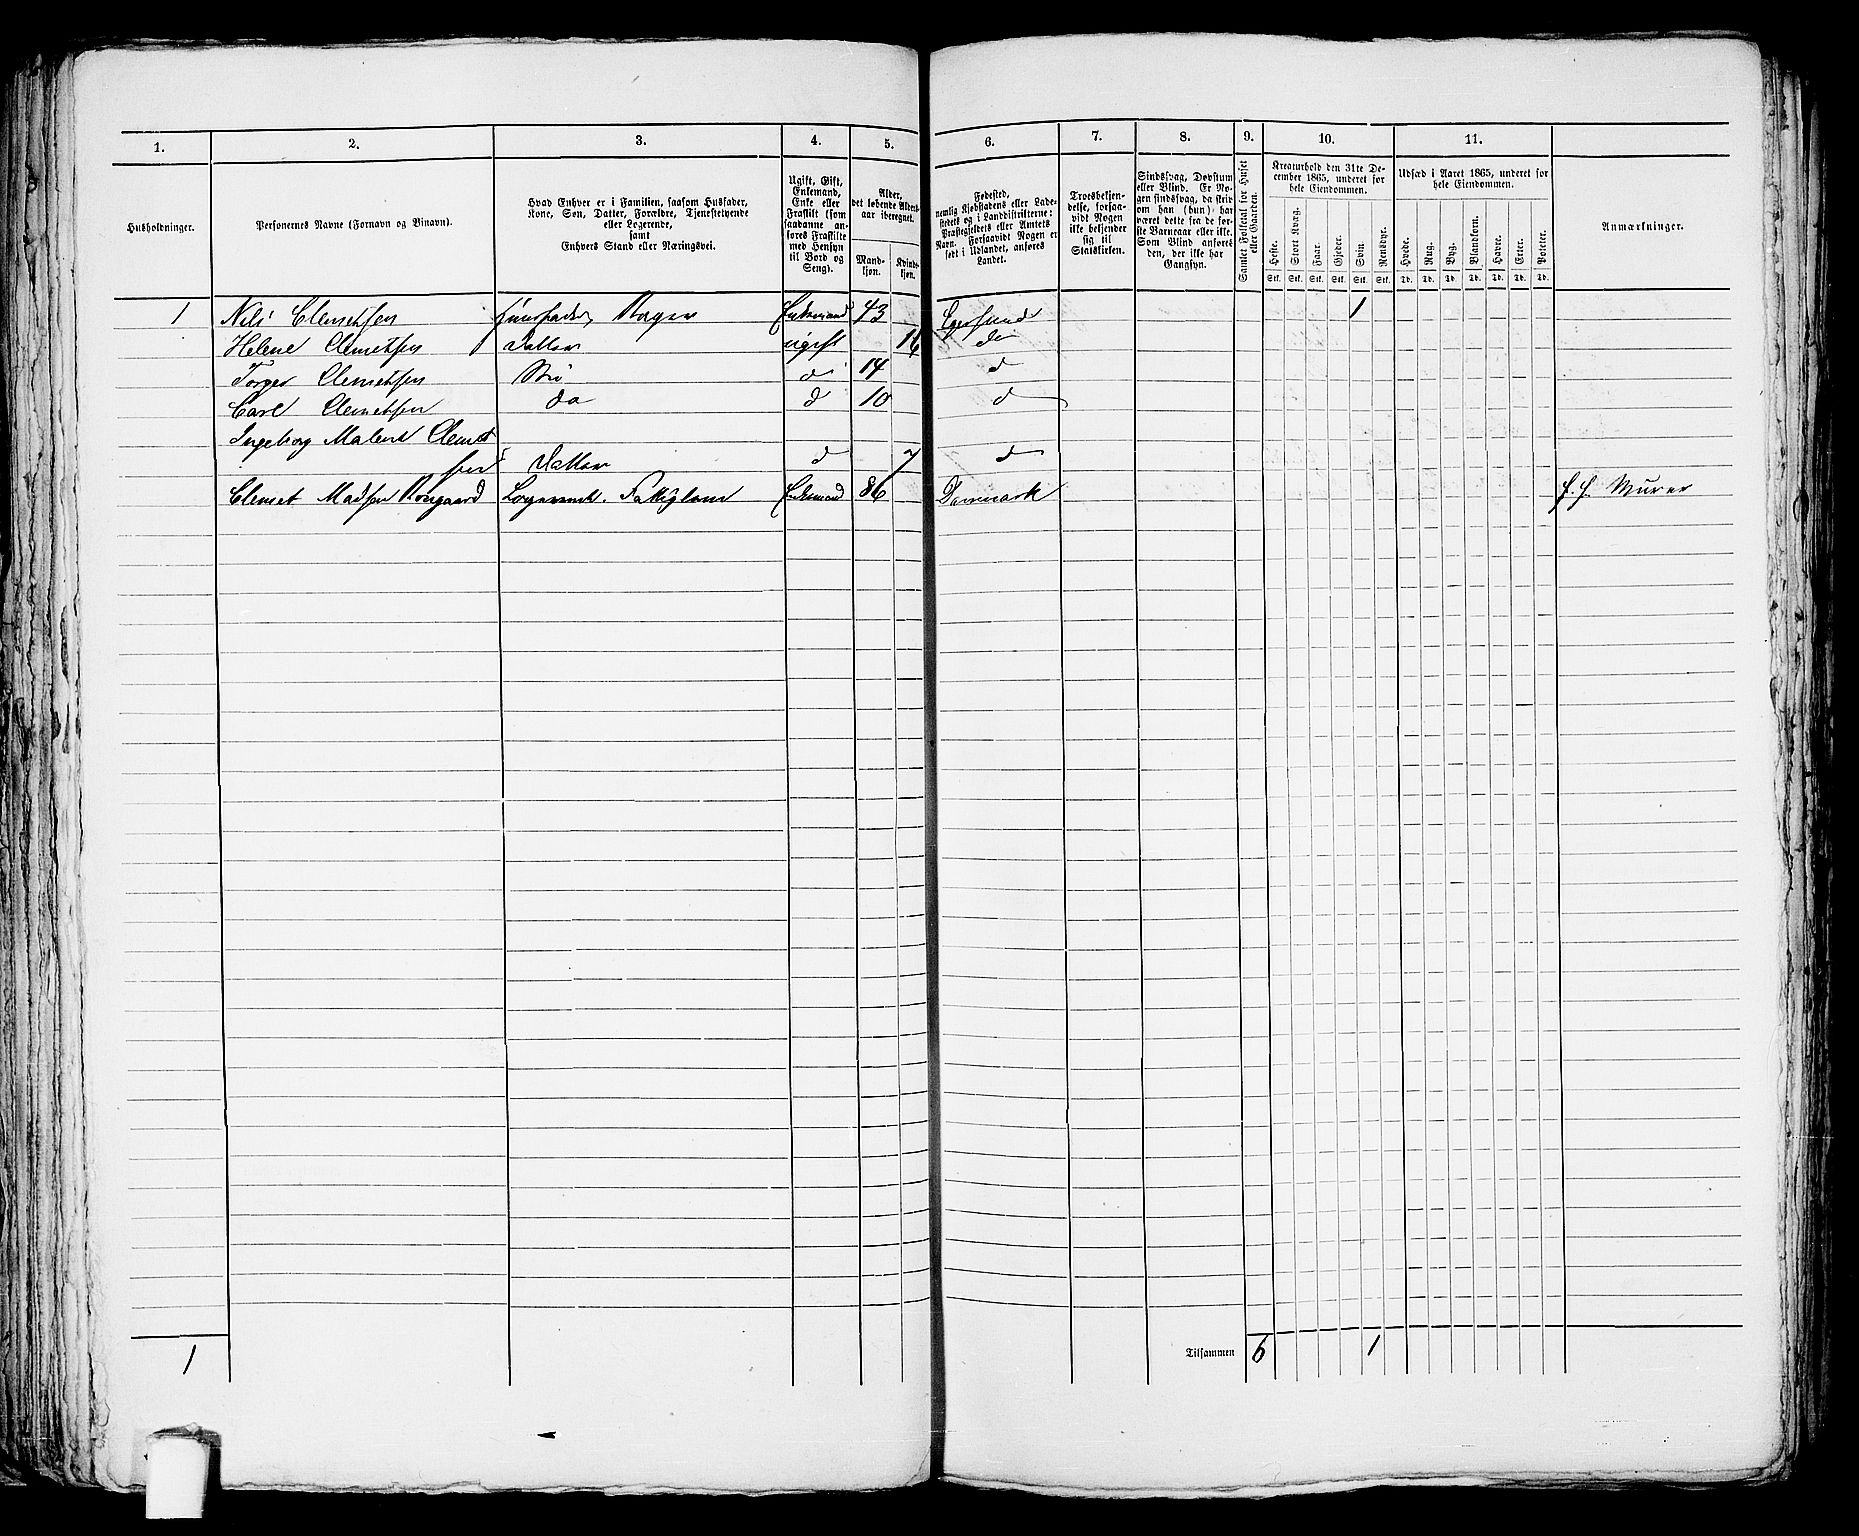 1. 2. 3. 4. 5. 6. 7. 8. 9. 10. 11.
Husholdninger.
Personernes Navne (Fornavn og Binavn).
Hvad Enhver er i Familien, saasom Husfader,
Kone, Søn, Datter, Forældre, Tjenestetyende
eller Logerende,
samt
Enhvers Stand eller Næringsvei.
Ugift, Gift,
Enkemand,
Enke eller
Fraskilt (som
saadanne an-
føres Fraskilte
med Hensyn
til Bord og
Seng).
Alder,
det løbende Alders-
aar iberegnet.
Mand-
kjøn.
Kvind-
kjøn.
Fødested,
nemlig Kjøbstadens eller Lade-
stedets og i Landdistrikterne:
Præstegjeldets eller Amtets
Navn. Forsaavidt Nogen er
født i Udlandet, anføres
Landet.
Troesbekjen-
delse, forsaa-
vidt Nogen
ikke bekjender
sig til
Statskirken.
Sindssvag, Døvstum
eller Blind. Er No-
gen sindssvag, da skriv
om han (hun) har
været dette fra de før-
ste Barneaar eller ikke.
Som Blind anføres
den, der ikke har
Gangsyn.
Samlet Folketal for Huset
eller Gaarden.
Kreaturhold den 31te De-
cember 1865, underet for
hele Eiendommen.
Heste. Stort Kvæg. Faar. Gjeder. Svin. Rensdyr.
Stk. Stk. Stk. Stk. Stk. Stk.
Udsæd i Aaret 1865, underet for
hele Eiendommen.
Hvede. Rug. Byg. Blandkorn. Havre. Erter. Poteter.
Td. Td. Td. Td. Td. Td. Td.
Anmærkninger.
1 Nils Clemetsen Huusfader, Bager Enkemand 43 Egersund 1
Helene Clemetsen Datter ugift 16 do
Torger Clemetsen Søn d 14 d
Carl Clemetsen do d 10 d
Ingeborg Malene Clemet
sen Datter d 7 d
Clemet Madsen Logerende. Fattiglem Enkemand 86 Danmark f. f. Murer
1 Tilsammen 6 1